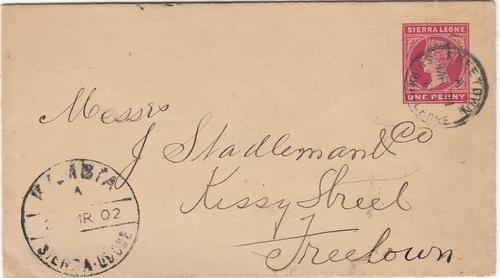 SIERRA LEONE
ONE PENNY
Messrs
J Stadlemand Co
Kissy Street
Freetown
A
MR 02
SIERRA-LEONE